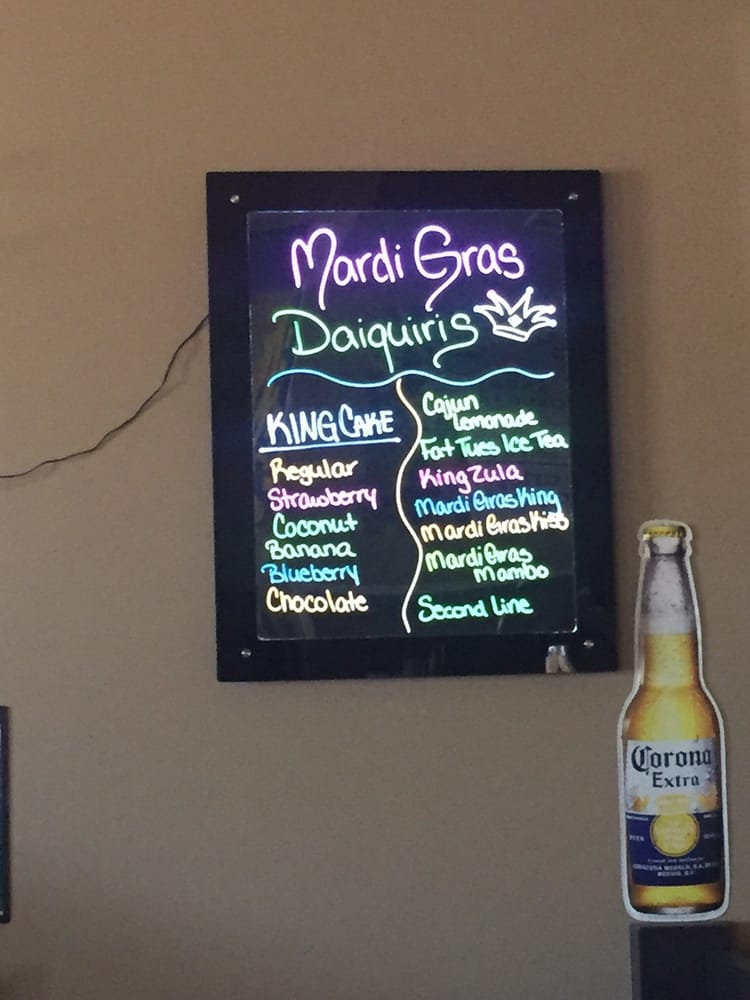 Mardi Gras
Daiquiris
KING CAKE
Regular
Strawberry
Coconut
Banana
Blueberry
Chocolate
Cajun
Lemonade
Fat Tues Ice Tea
King Zula
Mardi Gras King
Mardi Gras Kiss
Mardi Gras
Mambo
Second Line
Corona
Extra
BEER
CERVECERIA MODELO, S.A. DE
MEXICO, D.F.